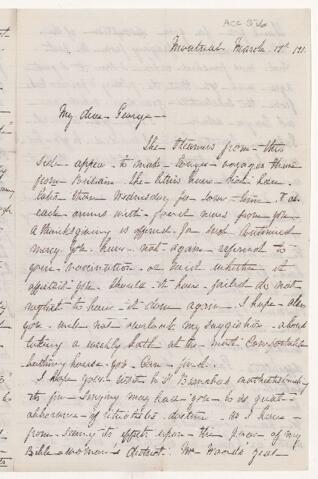 My dear George
The Steamers from this
side appear to make longer voyages than
from Britain. The letters have not been
later than Wednesday for some time. For
each arrival with good news from you
a thanksgiving is offered for such continued
mercy. You have not again referred to
your vaccination or said whether it
affected you. Should it have failed do not
neglect to have it done again. I hope also
you will not overlook my suggestion about
taking a weekly bath at the most comfortable
bathing house you can find.
I hope your visit to St Barnabas notwithstanding
the fine singing may have given you as great
abhorrence of ritualistic doctrine as I have
from seeing its effects upon the poor of my
Bible woman's district. Mr Wood's zeal